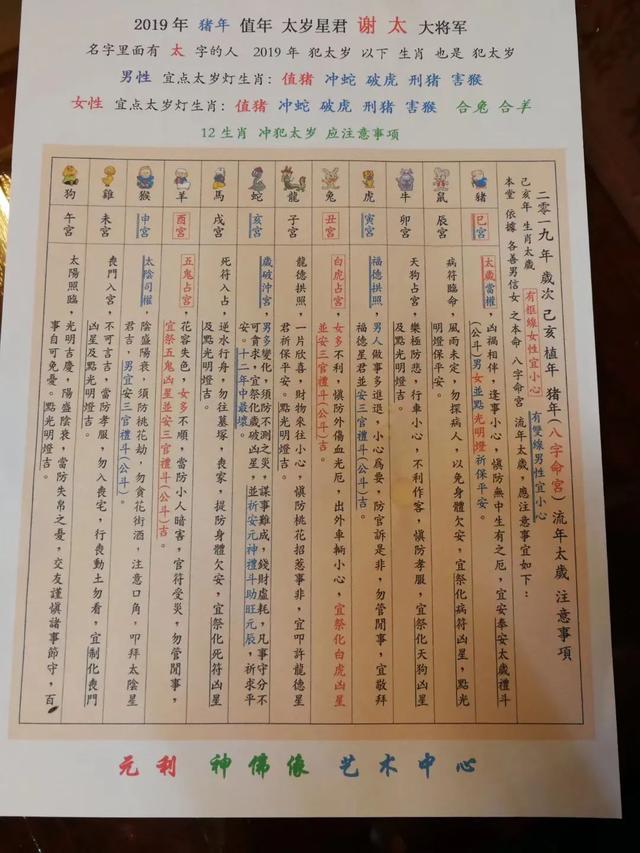 2019年 猪年 值年 太岁星君 谢 太 大将军
名字里面有 太 字的人 2019年 犯太岁 以下 生肖 也是 犯太岁
男性 宜点太岁灯生肖：值猪 冲蛇 破虎 刑猪 害猴
女性 宜点太岁灯生肖：值猪 冲蛇 破虎 刑猪 害猴 合兔 合羊
12生肖 冲犯太岁 应注意事项
二零一九年歲次己亥植年 豬年(八字命宮)流年太歲 注意事項
己亥年 生肖太歲 有框線女性宜小心 有雙線男性宜小心
本堂 依據 各善男信女之本命 八字命宮 流年太歲，應注意事宜如下：
豬
巳宮
太歲當權，凶禍相伴，逢事小心，慎防無中生有之厄，宜安奉安太歲禮斗
(公斗)男女並點光明燈祈保平安。
鼠
辰宮
病符臨命，風雨未定，勿探病人，以免身體欠安，宜祭化病符凶星，點光
明燈保平安。
牛
卯宮
天狗占宮，樂極防悲，行車小心，不利作客，慎防孝服，宜祭化天狗凶星
及點光明燈吉。
虎
寅宮
福德拱照，男人做事多進退，小心為要，防官訴是非，勿管閒事，宜敬拜
福德星君並安三官禮斗(公斗)吉。
兔
丑宮
白虎占宮，女多不利，慎防外傷血光厄，出外車輛小心，宜祭化白虎凶星
並安三官禮斗(公斗)吉。
龍
子宮
龍德拱照，一片欣喜，財物來往小心，慎防桃花招惹事非，宜叩許龍德星
君祈保平安。
蛇
亥宮
歲破沖宮，男多變化，須防不測之災，謀事難成，錢財虛耗，凡事守分不
可貪求，宜祭化歲破凶星，並祈安元神禮斗助旺元辰，祈求平
安。十二年中最壞。
馬
戌宮
死符入占，逆水行舟，勿往墓塚，喪家，提防身體欠安，宜祭化死符凶星
及點光明燈吉。
羊
酉宮
五鬼占宮，花容失色，女多不順，當防小人暗害，官符受災，勿管閒事，
宜祭五鬼凶星並安三官禮斗(公斗)吉。
猴
申宮
太陰司權，陰盛陽衰，須防桃花劫，勿貪花街酒，注意口角，叩拜太陰星
君吉，男宜安三官禮斗(公斗)吉。
雞
未宮
喪門入宮，不可言吉，當防孝服，勿入喪宅，行喪動土勿看，宜制化喪門
凶星及點光明燈吉。
狗
午宮
太陽照臨，光明吉慶，陽盛陰衰，當防失帛之憂，交友謹慎諸事節守，百
事自可免憂。點光明燈吉。
元利 神佛像 艺术中心